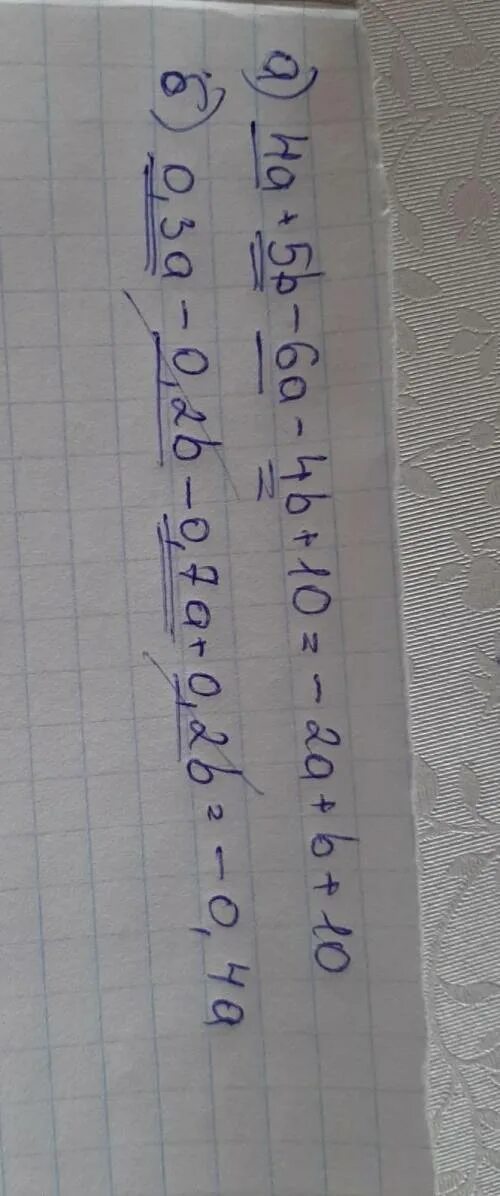 а) 4a + 5b - 6a - 4b + 10 = - 2a + b + 10
б) 0,3a - 0,2b - 0,7a + 0,2b = - 0,4a